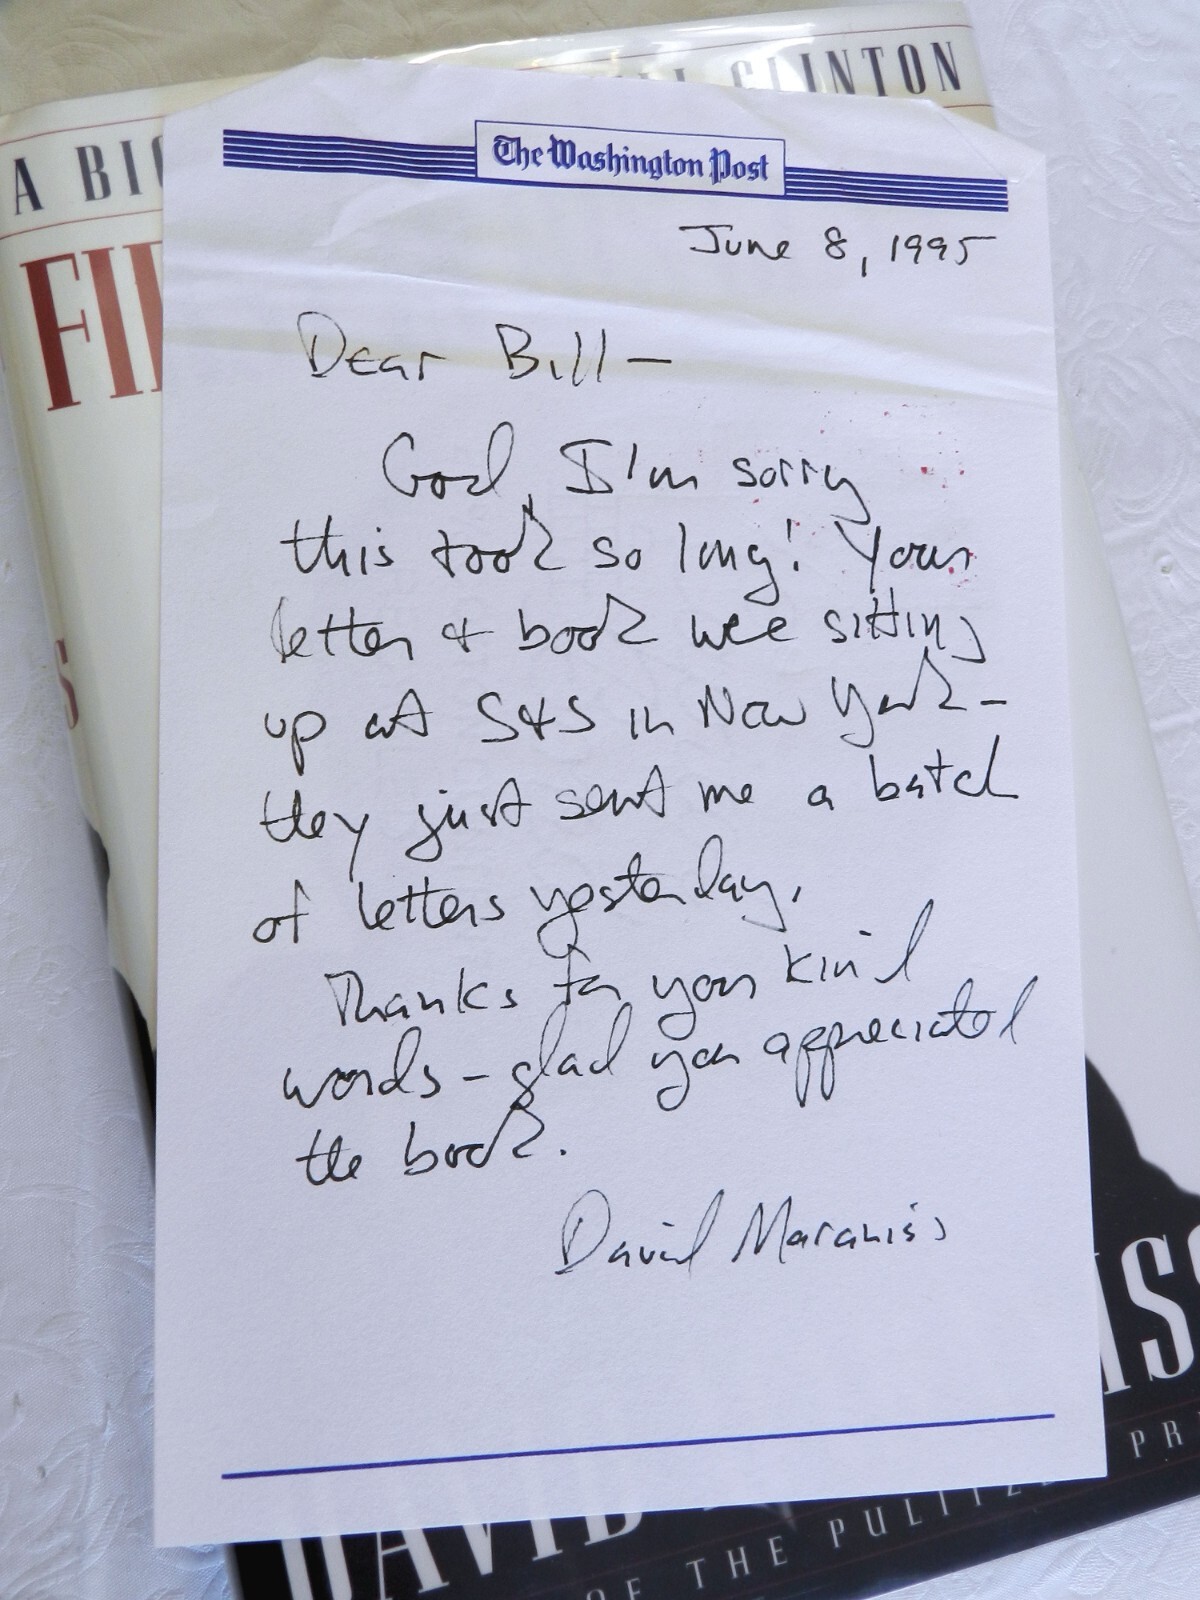 CLINTON
A BI
FI
S
The Washington Post
June 8, 1995
Dear Bill —
God, I'm sorry
this took so long! Your
letter & book were sitting
up at S&S in New York -
they just sent me a batch
of letters yesterday.
Thanks for your kind
words - glad you appreciated
the book.
David Maraniss
ISS
DAVID
OF THE PULITZ PR